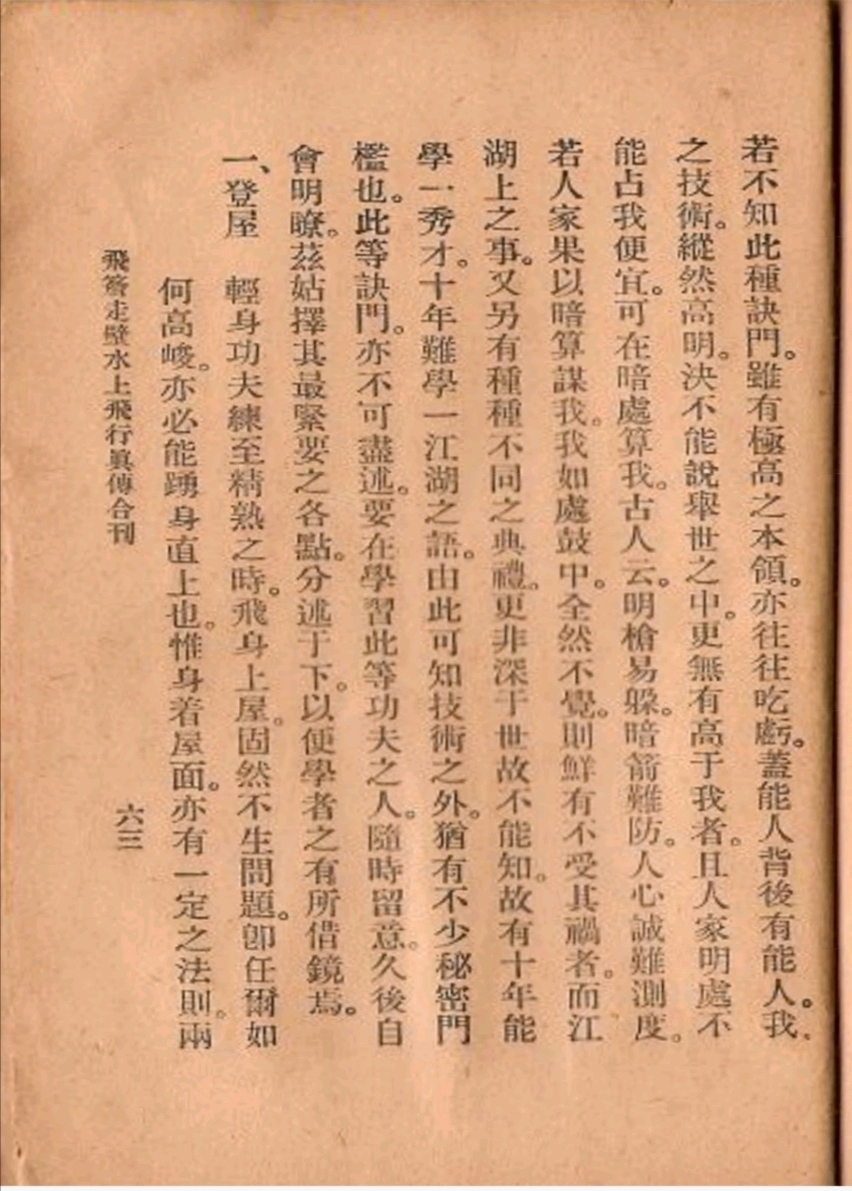 若不知此種訣門。雖有極高之本領。亦往往吃虧。蓋能人背後有能人。我
之技術。縱然高明。決不能說舉世之中。更無有高于我者。且人家明處不
能占我便宜。可在暗處算我。古人云。明槍易躲。暗箭難防。人心誠難測度。
若人家果以暗算謀我。我如處鼓中。全然不覺。則鮮有不受其禍者。而江
湖上之事。又另有種種不同之典禮。更非深于世故不能知。故有十年能
學一秀才。十年難學一江湖之語。由此可知技術之外。猶有不少秘密門
檻也。此等訣門。亦不可盡述。要在學習此等功夫之人。隨時留意。久後自
會明瞭。茲姑擇其最緊要之各點。分述于下。以便學者之有所借鏡焉。
一、登屋　輕身功夫練至精熟之時。飛身上屋。固然不生問題。卽任爾如
何高峻。亦必能踴身直上也。惟身着屋面。亦有一定之法則。兩
飛簷走壁水上飛行眞傳合刊　六三